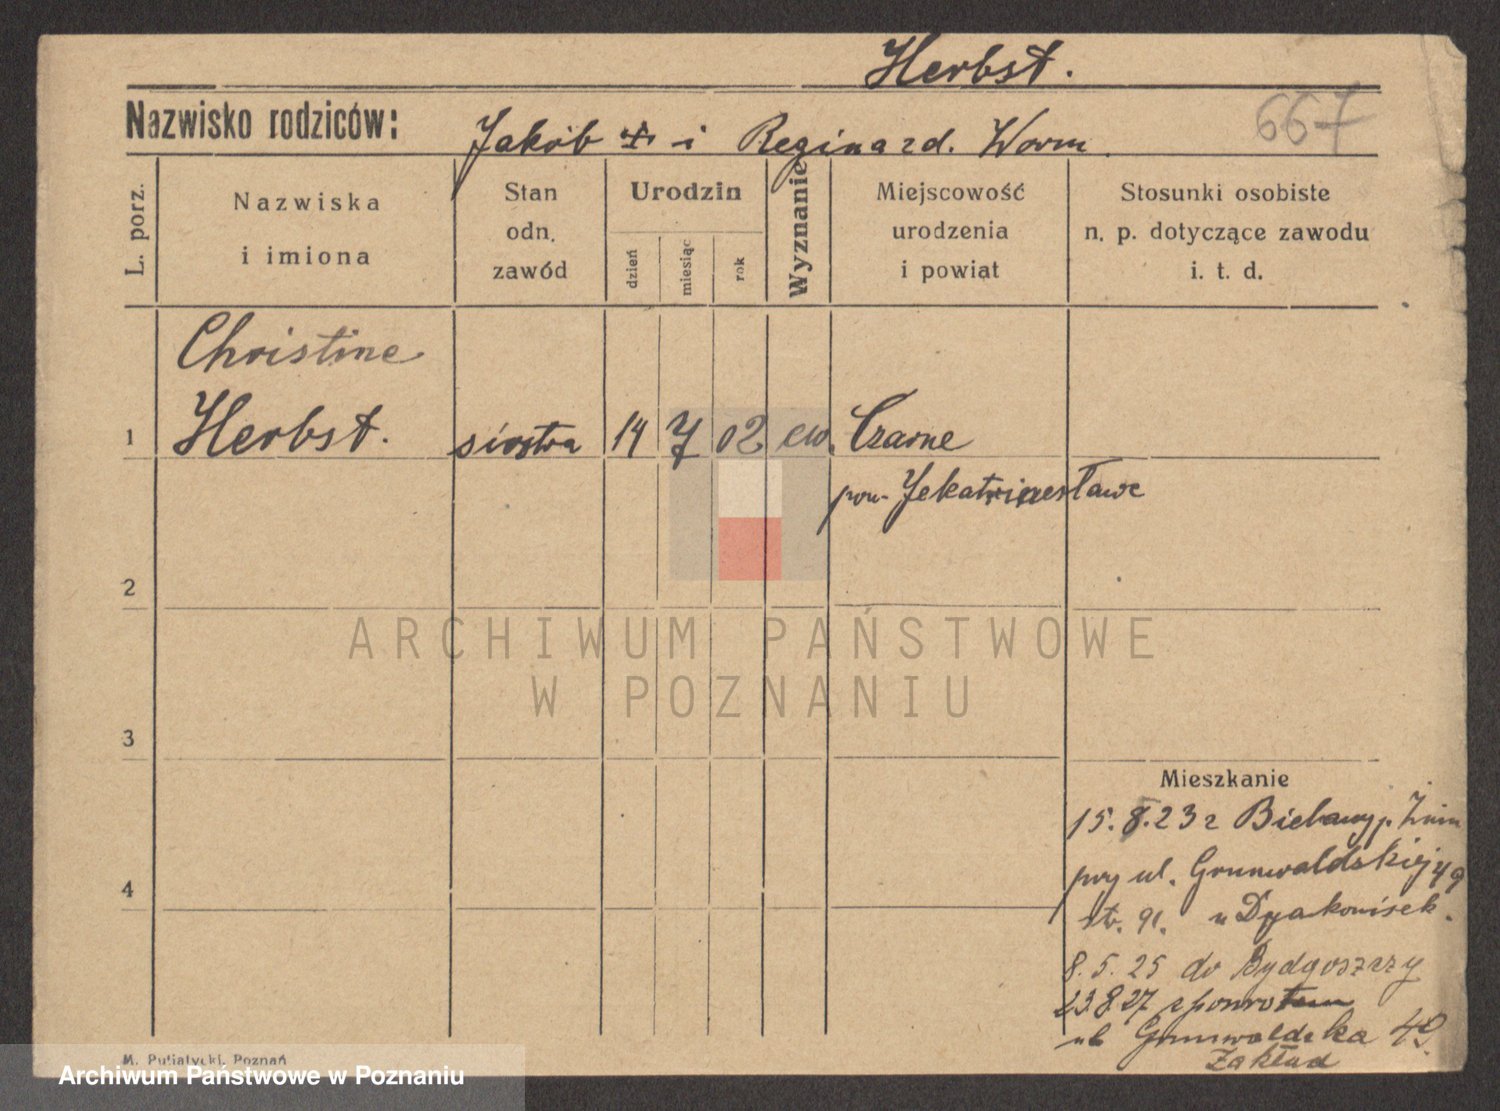 Herbst.
Nazwisko rodziców:
Jakób i Regina zd. Worm
667
L. porz.
Nazwiska
i imiona
Stan
odn.
zawód
Urodzin
dzień
miesiąc
rok
Wyznanie
Miejscowość
urodzenia
i powiat
Stosunki osobiste
n. p. dotyczące zawodu
i. t. d.
Christine
1 Herbst. siostra 14 7 02 ew. Czarne
pow. Jekatrinesławe
2
ARCHIWUM PAŃSTWOWE
W POZNANIU
3
Mieszkanie
15. 8. 23 z Bielawy p. Żnin
przy ul. Grunwaldskiej 49
4
str. 91. u Dyakonisek.
8. 5. 25 do Bydgoszczy
23.8.27 z powrotem
ul Grunwaldska 49.
Zakład
M. Putiatycki, Poznań
Archiwum Państwowe w Poznaniu